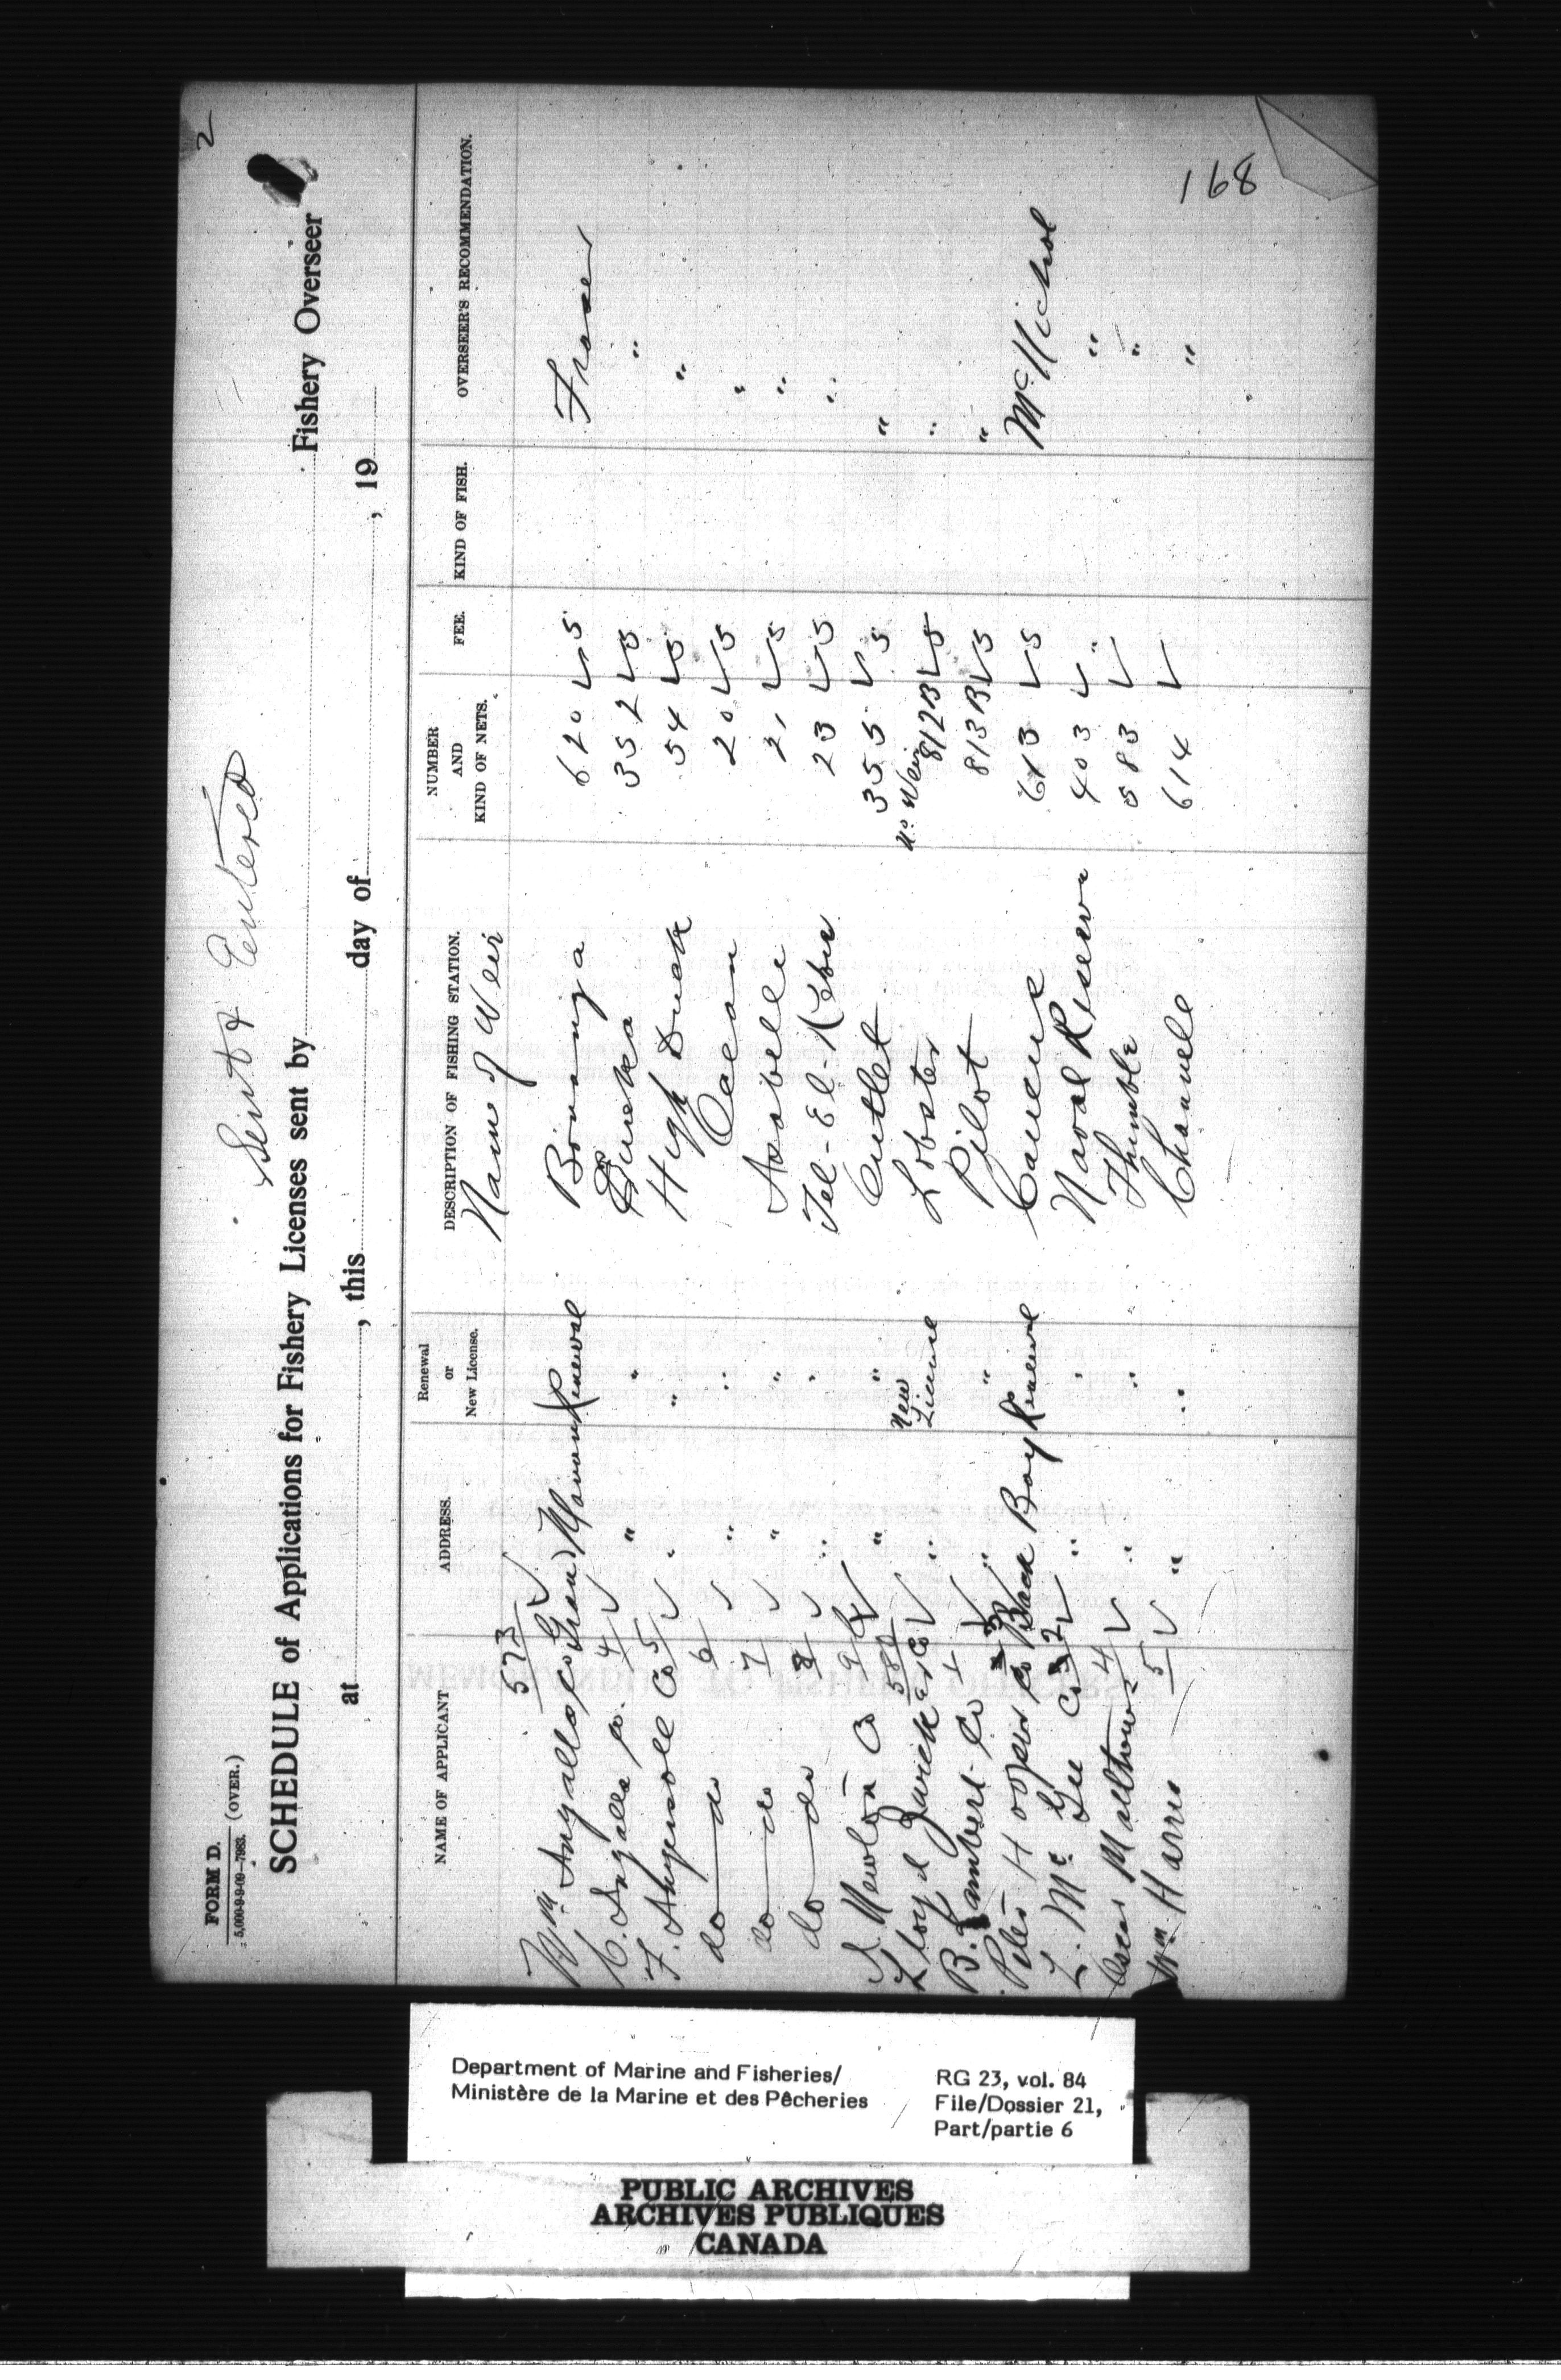 2
FORM D.
5,000-9-9-09—7983. (OVER.)
Sent & Entered
SCHEDULE of Applications for Fishery Licenses sent by Fishery Overseer
at , this day of , 19
NAME OF APPLICANT ADDRESS. Renewal or New License. DESCRIPTION OF FISHING STATION. NUMBER AND KIND OF NETS. FEE. KIND OF FISH. OVERSEER'S RECOMMENDATION.
Name of Weir
573
Wm Ingalls Co Grand Manan Renewal 620 ✓ 5 Fraser
C. Ingalls Co. 4 ✓ " " Eureka 352 ✓ 5 "
F. Ingersoll Co 5 ✓ " " High Duck 54 ✓ 5 "
do do 6 ✓ " " Ocean 20 ✓ 5 "
do do 7 ✓ " " Isabelle 21 ✓ 5 "
do do 8 ✓ " " Tel-El-Kebir 23 ✓ 5 "
Newton Co 9 ✓ " " Outlet 355 ✓ 5 "
Lloyd Co 580 ✓ " New License Lobster No Weir 812B ✓ 5 "
B. Lambert Co 1 ✓ " " Pilot 813B ✓ 5 "
Peter Hooper Co ✓ Back Bay Renewal 613 ✓ 5 McNichol
L. McGee Co 2 ✓ " " Naval Reserve 403 ✓ " "
Oscar 4 ✓ " " Thimble 583 ✓ "
Wm Harris 5 ✓ " " Chanelle 614 ✓ "
168
Department of Marine and Fisheries/
Ministère de la Marine et des Pêcheries
RG 23, vol. 84
File/Dossier 21,
Part/partie 6
PUBLIC ARCHIVES
ARCHIVES PUBLIQUES
CANADA